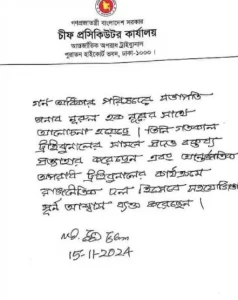 গণপ্রজাতন্ত্রী বাংলাদেশ সরকার
চীফ প্রসিকিউটর কার্যালয়
আন্তর্জাতিক অপরাধ ট্রাইব্যুনাল
পুরাতন হাইকোর্ট ভবন, ঢাকা-১০০০।
গন অধিকার পরিষদের সভাপতি
জনাব নুরুল হক নুরের সাথে
আলোচনা হয়েছে। তিনি গতকাল
ট্রাইব্যুনালের সামনে প্রদত্ত বক্তব্য
প্রত্যাহার করেছেন এবং আন্তর্জাতিক
অপরাধ ট্রাইব্যুনালের কার্যক্রমে
রাজনৈতিক দল হিসেবে সহযোগিতার
পূর্ন আশ্বাস ব্যক্ত করেছেন।
15-11-2024